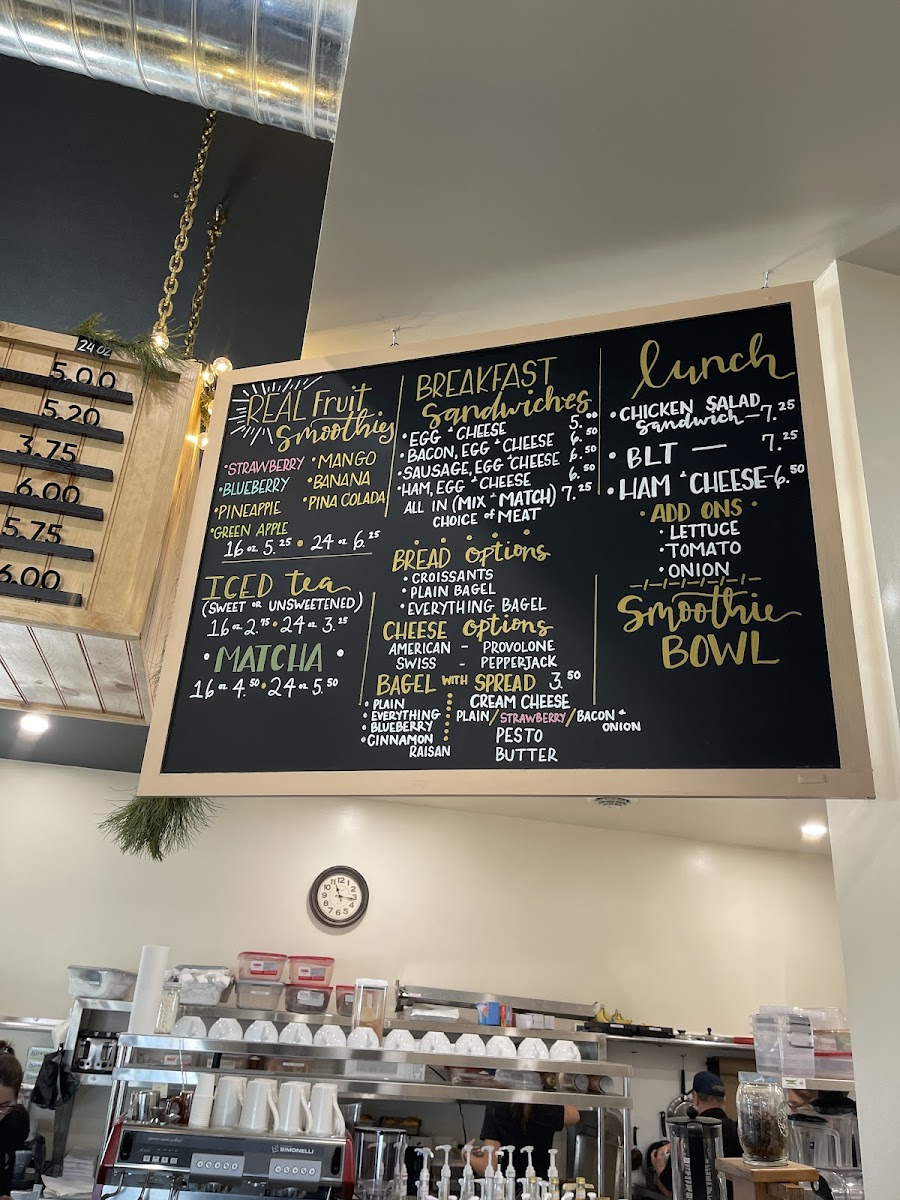 24 OZ
5.00
5.20
3.75
6.00
5.75
6.00
REAL Fruit
Smoothies
• STRAWBERRY
• BLUEBERRY
• PINEAPPLE
• GREEN APPLE
• MANGO
• BANANA
• PINA COLADA
16 oz 5.25 • 24 oz 6.25
ICED tea
(SWEET OR UNSWEETENED)
16 oz 2.75 • 24 oz 3.25
• MATCHA •
16 oz 4.50 • 24 oz 5.50
BREAKFAST
Sandwiches
• EGG & CHEESE 5.00
• BACON, EGG & CHEESE 6.50
• SAUSAGE, EGG & CHEESE 6.50
• HAM, EGG & CHEESE 6.50
ALL IN (MIX & MATCH) 7.25
CHOICE of MEAT
BREAD options
• CROISSANTS
• PLAIN BAGEL
• EVERYTHING BAGEL
CHEESE options
AMERICAN - PROVOLONE
SWISS - PEPPERJACK
BAGEL WITH SPREAD 3.50
• PLAIN
• EVERYTHING
• BLUEBERRY
• CINNAMON
RAISAN
CREAM CHEESE
PLAIN / STRAWBERRY / BACON &
ONION
PESTO
BUTTER
lunch
• CHICKEN SALAD
Sandwich — 7.25
• BLT — 7.25
• HAM & CHEESE - 6.50
• ADD ONS •
• LETTUCE
• TOMATO
• ONION
Smoothie
BOWL
SIMONELLI